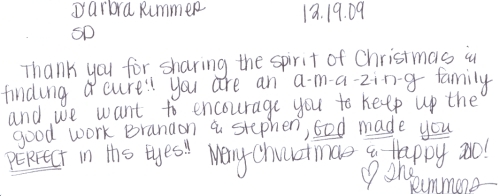 D'arbra Rimmer 12.19.09
SD
Thank you for sharing the spirit of Christmas &
finding a cure!! You are an a-m-a-z-i-n-g family
and we want to encourage you to keep up the
good work Brandon & Stephen, God made you
PERFECT in His Eyes!! Merry Christmas & Happy 2010!
♡ The
Rimmers